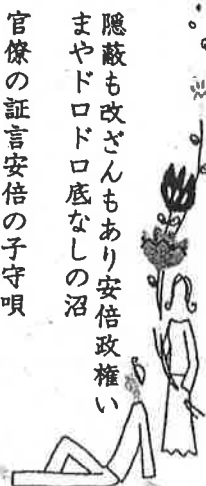 隠蔽も改ざんもあり安倍政権い
まやドロドロ底なしの沼
官僚の証言安倍の子守唄